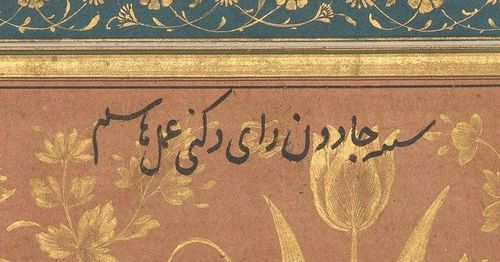 شبیه جادون رای دکنی عمل هاشم